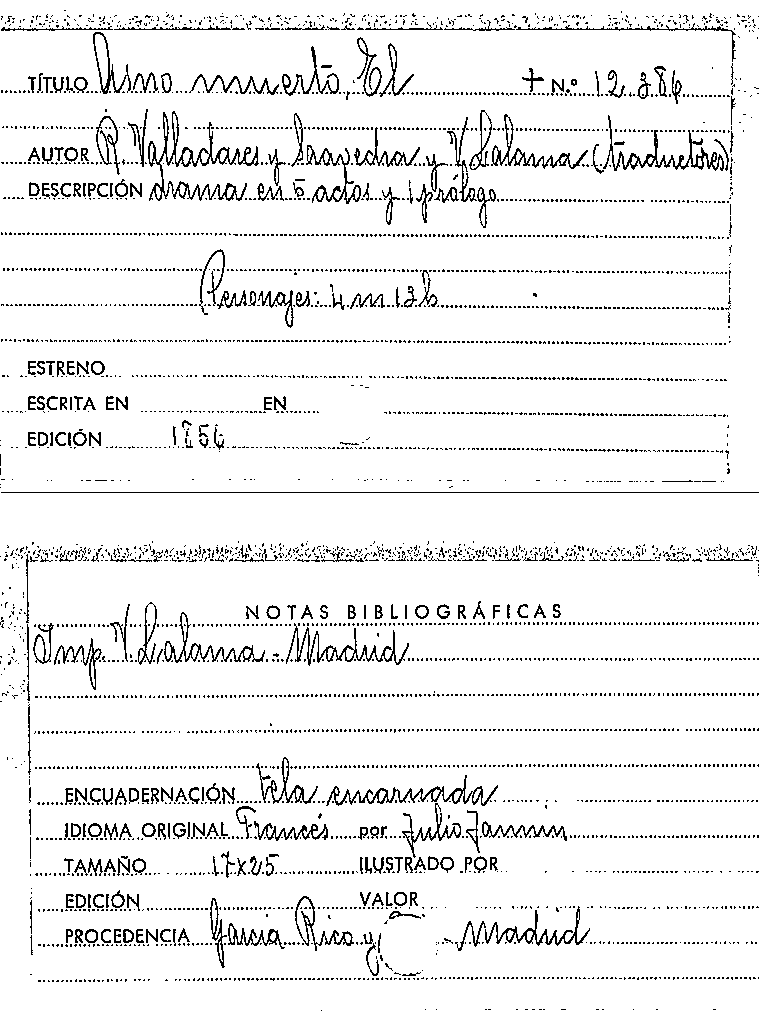 TÍTULO Asno muerto, El + N.º 12.386
AUTOR R. Valladares y Saavedra y V. Lalama (traductores)
DESCRIPCIÓN drama en 5 actos y 1 prólogo
Personajes: 4 m 13 h
ESTRENO
ESCRITA EN EN
EDICIÓN 1856
NOTAS BIBLIOGRÁFICAS
Imp. V. Lalama - Madrid
ENCUADERNACIÓN tela encarnada
IDIOMA ORIGINAL Francés por Julio Jannin
TAMAÑO 17x25 ILUSTRADO POR
EDICIÓN VALOR
PROCEDENCIA García Rico y - Madrid